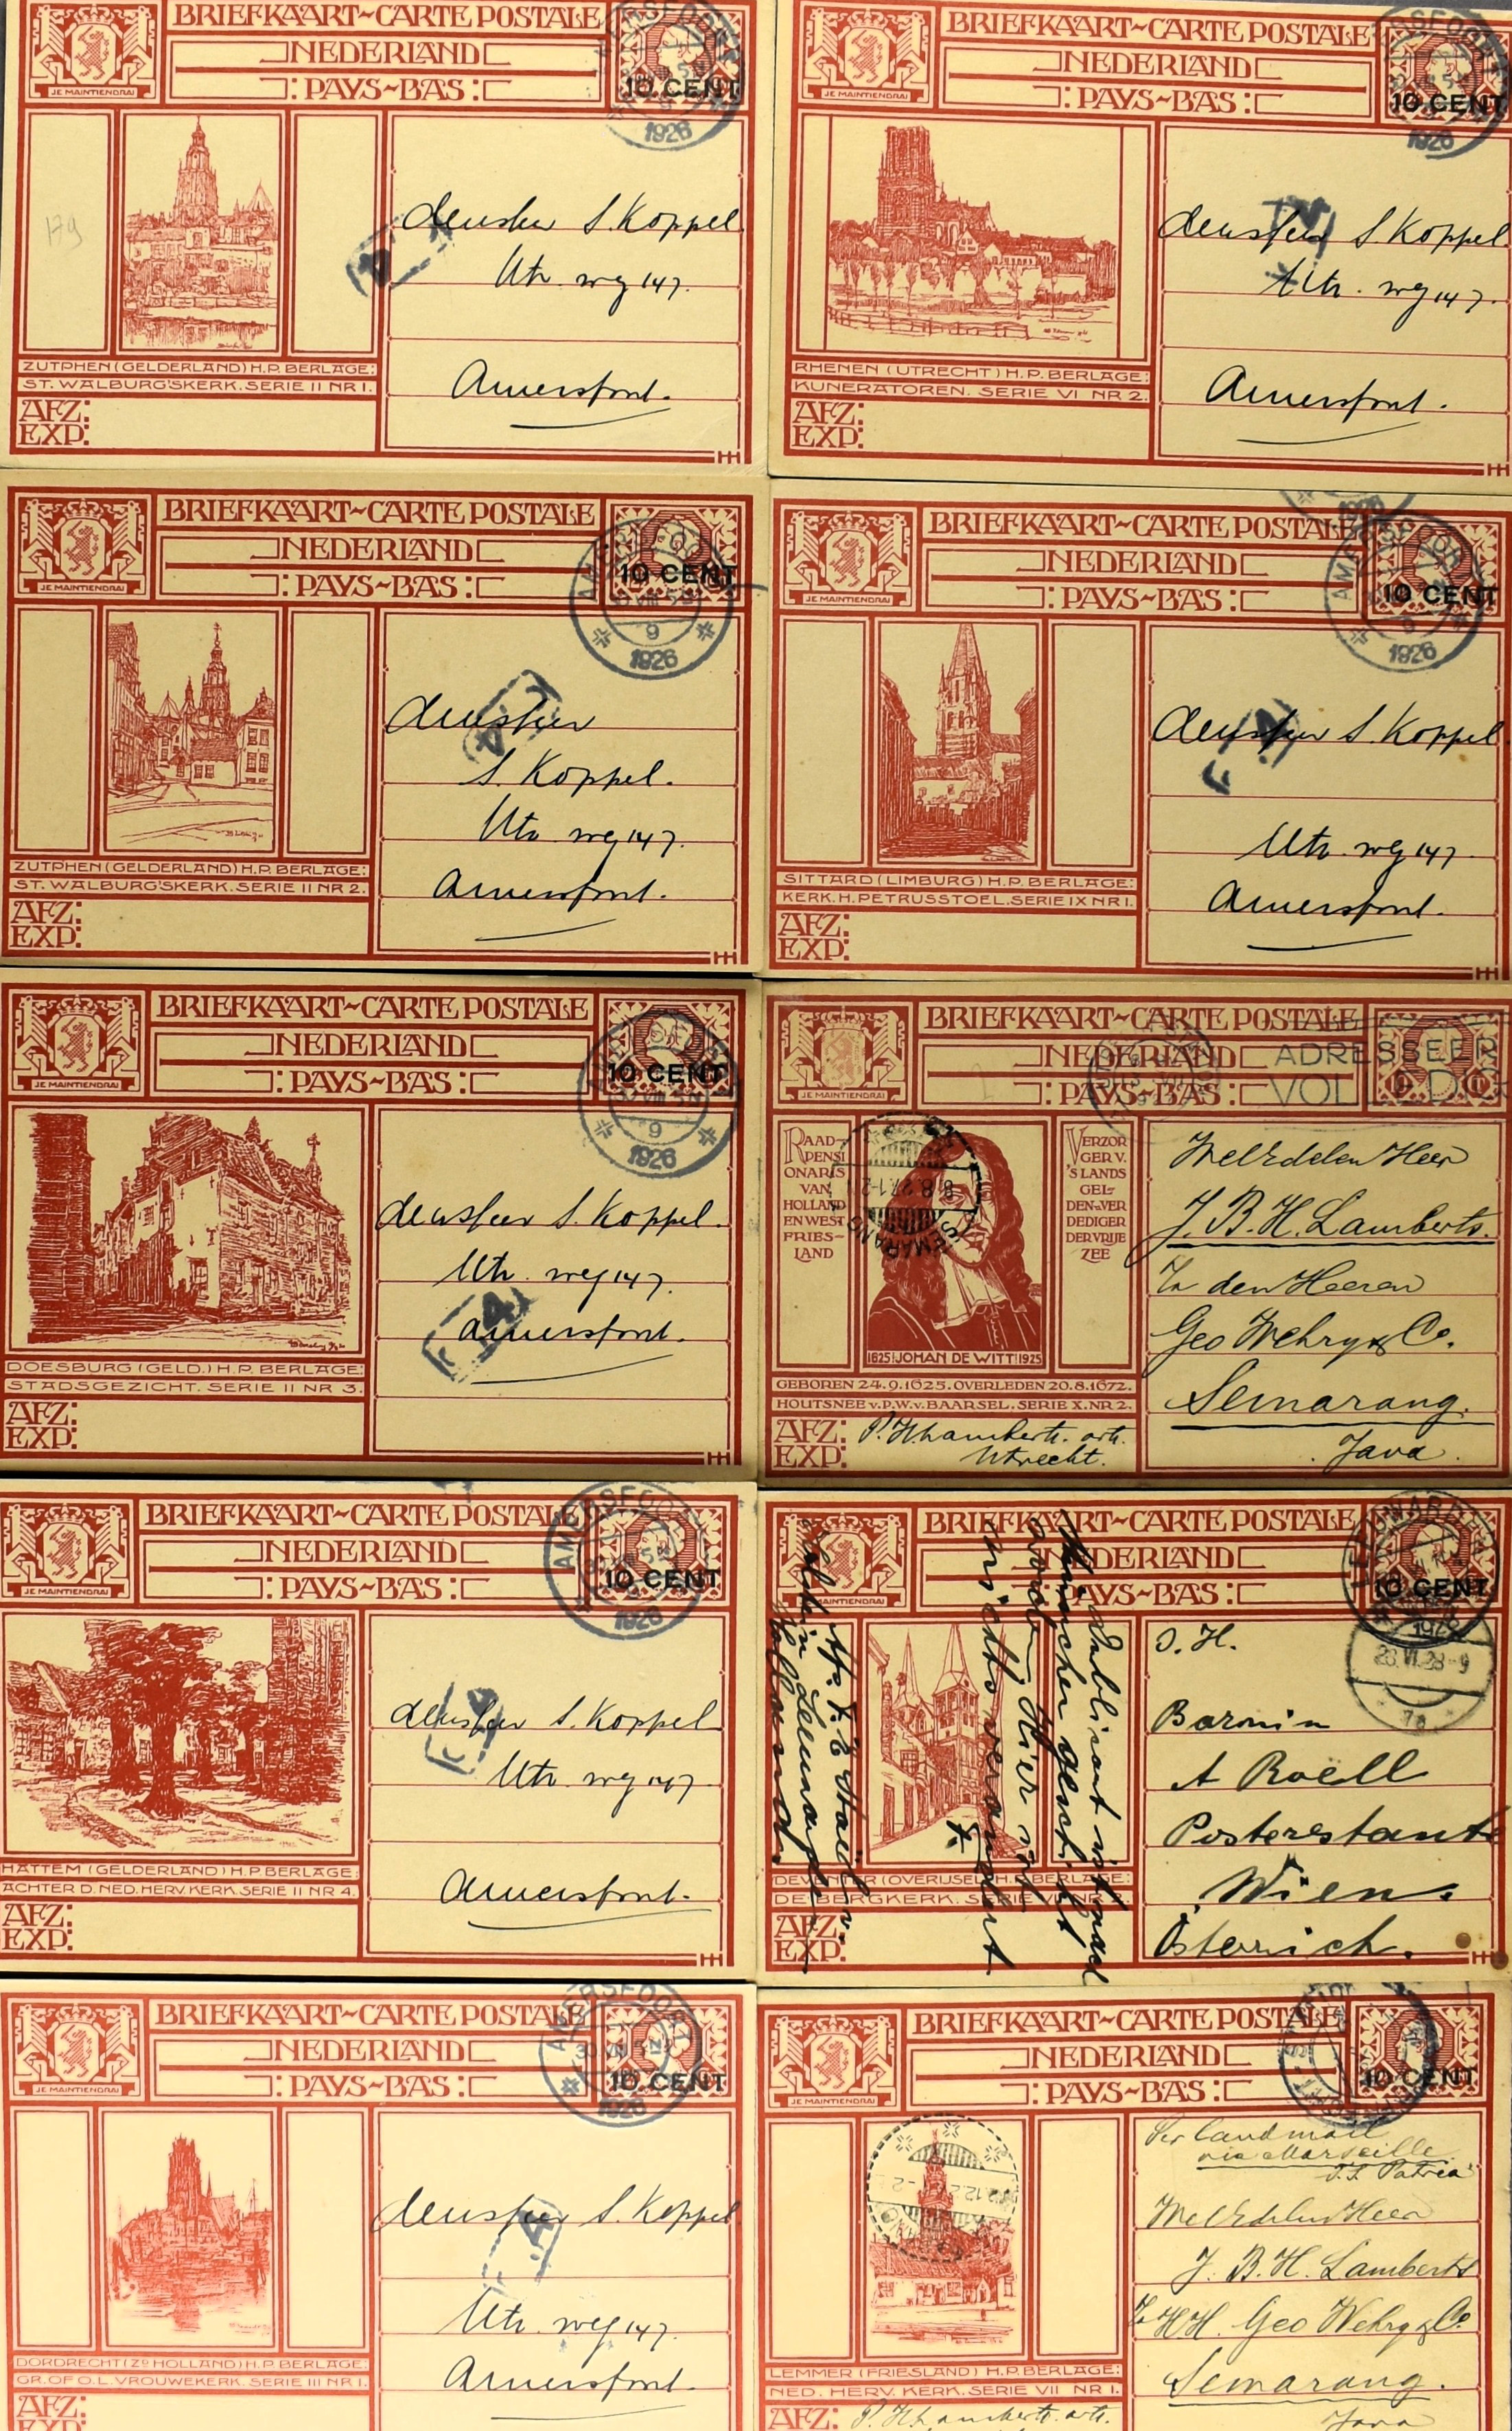 BRIEFKAART~CARTE POSTALE
NEDERLAND
PAYS~BAS
JE MAINTIENDRAI
10 CENT
1926
179
S. Koppel.
Utr. weg 147.
Amersfoort.
ZUTPHEN (GELDERLAND) H.P. BERLAGE:
ST. WALBURG'SKERK. SERIE II NR 1.
AFZ:
EXP:
BRIEFKAART~CARTE POSTALE
NEDERLAND
PAYS~BAS
JE MAINTIENDRAI
10 CENT
1926
S. Koppel
Utr. weg 147.
Amersfoort.
RHENEN (UTRECHT) H.P. BERLAGE:
KUNERATOREN. SERIE VI NR 2.
AFZ:
EXP:
BRIEFKAART~CARTE POSTALE
NEDERLAND
PAYS~BAS
JE MAINTIENDRAI
10 CENT
9
1926
S. Koppel.
Utr. weg 147.
Amersfoort.
ZUTPHEN (GELDERLAND) H.P. BERLAGE:
ST. WALBURG'SKERK. SERIE II NR 2.
AFZ:
EXP:
BRIEFKAART~CARTE POSTALE
NEDERLAND
PAYS~BAS
JE MAINTIENDRAI
10 CENT
1926
S. Koppel.
Utr. weg 147
Amersfoort.
SITTARD (LIMBURG) H.P. BERLAGE:
KERK. H. PETRUSSTOEL. SERIE IX NR 1.
AFZ:
EXP:
BRIEFKAART~CARTE POSTALE
NEDERLAND
PAYS~BAS
JE MAINTIENDRAI
10 CENT
9
1926
S. Koppel.
Utr. weg 147.
Amersfoort.
DOESBURG (GELD.) H.P. BERLAGE:
STADSGEZICHT. SERIE II NR 3.
AFZ:
EXP:
BRIEFKAART~CARTE POSTALE
NEDERLAND
PAYS~BAS
JE MAINTIENDRAI
ADRESSEER
VOLLEDIG
RAAD-
PENSI
ONARIS
VAN
HOLLAND
EN WEST
FRIES-
LAND
VERZOR
GER V.
'S LANDS
GEL-
DEN=VER
DEDIGER
DER VRIJE
ZEE
SEMARANG
8.8.27.1-2
1625 JOHAN DE WITT 1925
GEBOREN 24.9.1625. OVERLEDEN 20.8.1672.
HOUTSNEE v. P.W.v. BAARSEL. SERIE X. NR 2.
WelEdelen Heer
J. B. H. Lamberts.
p/a den Heeren
Geo Wehry & Co.
Semarang.
Java.
AFZ: P. H. Lamberts. arts.
EXP: Utrecht.
BRIEFKAART~CARTE POSTALE
NEDERLAND
PAYS~BAS
JE MAINTIENDRAI
AMERSFOORT
10 CENT
1926
S. Koppel
Utr. weg 147
Amersfoort.
HATTEM (GELDERLAND) H.P. BERLAGE:
ACHTER D. NED. HERV. KERK. SERIE II NR 4.
AFZ:
EXP:
BRIEFKAART~CARTE POSTALE
NEDERLAND
PAYS~BAS
LEEUWARDEN
10 CENT
1928
28.VI.28-9
I. H.
Baronin
A Roëll
Posterestante
Wien.
Österreich.
DE BERGKERK.
AFZ:
EXP:
BRIEFKAART~CARTE POSTALE
NEDERLAND
PAYS~BAS
JE MAINTIENDRAI
AMERSFOORT
10 CENT
1926
S. Koppel
Utr. weg 147.
Amersfoort.
DORDRECHT (Zd HOLLAND) H.P. BERLAGE:
GR. OF O.L. VROUWEKERK. SERIE III NR 1.
AFZ:
EXP:
BRIEFKAART~CARTE POSTALE
NEDERLAND
PAYS~BAS
JE MAINTIENDRAI
10 CENT
Per landmail
via Marseille
S.S. Patria
WelEdelen Heer
J. B. H. Lamberts
p/a HH. Geo Wehry & Co.
Semarang.
Java
LEMMER (FRIESLAND) H.P. BERLAGE:
NED. HERV. KERK. SERIE VII NR 1.
AFZ: P. H. Lamberts. arts.